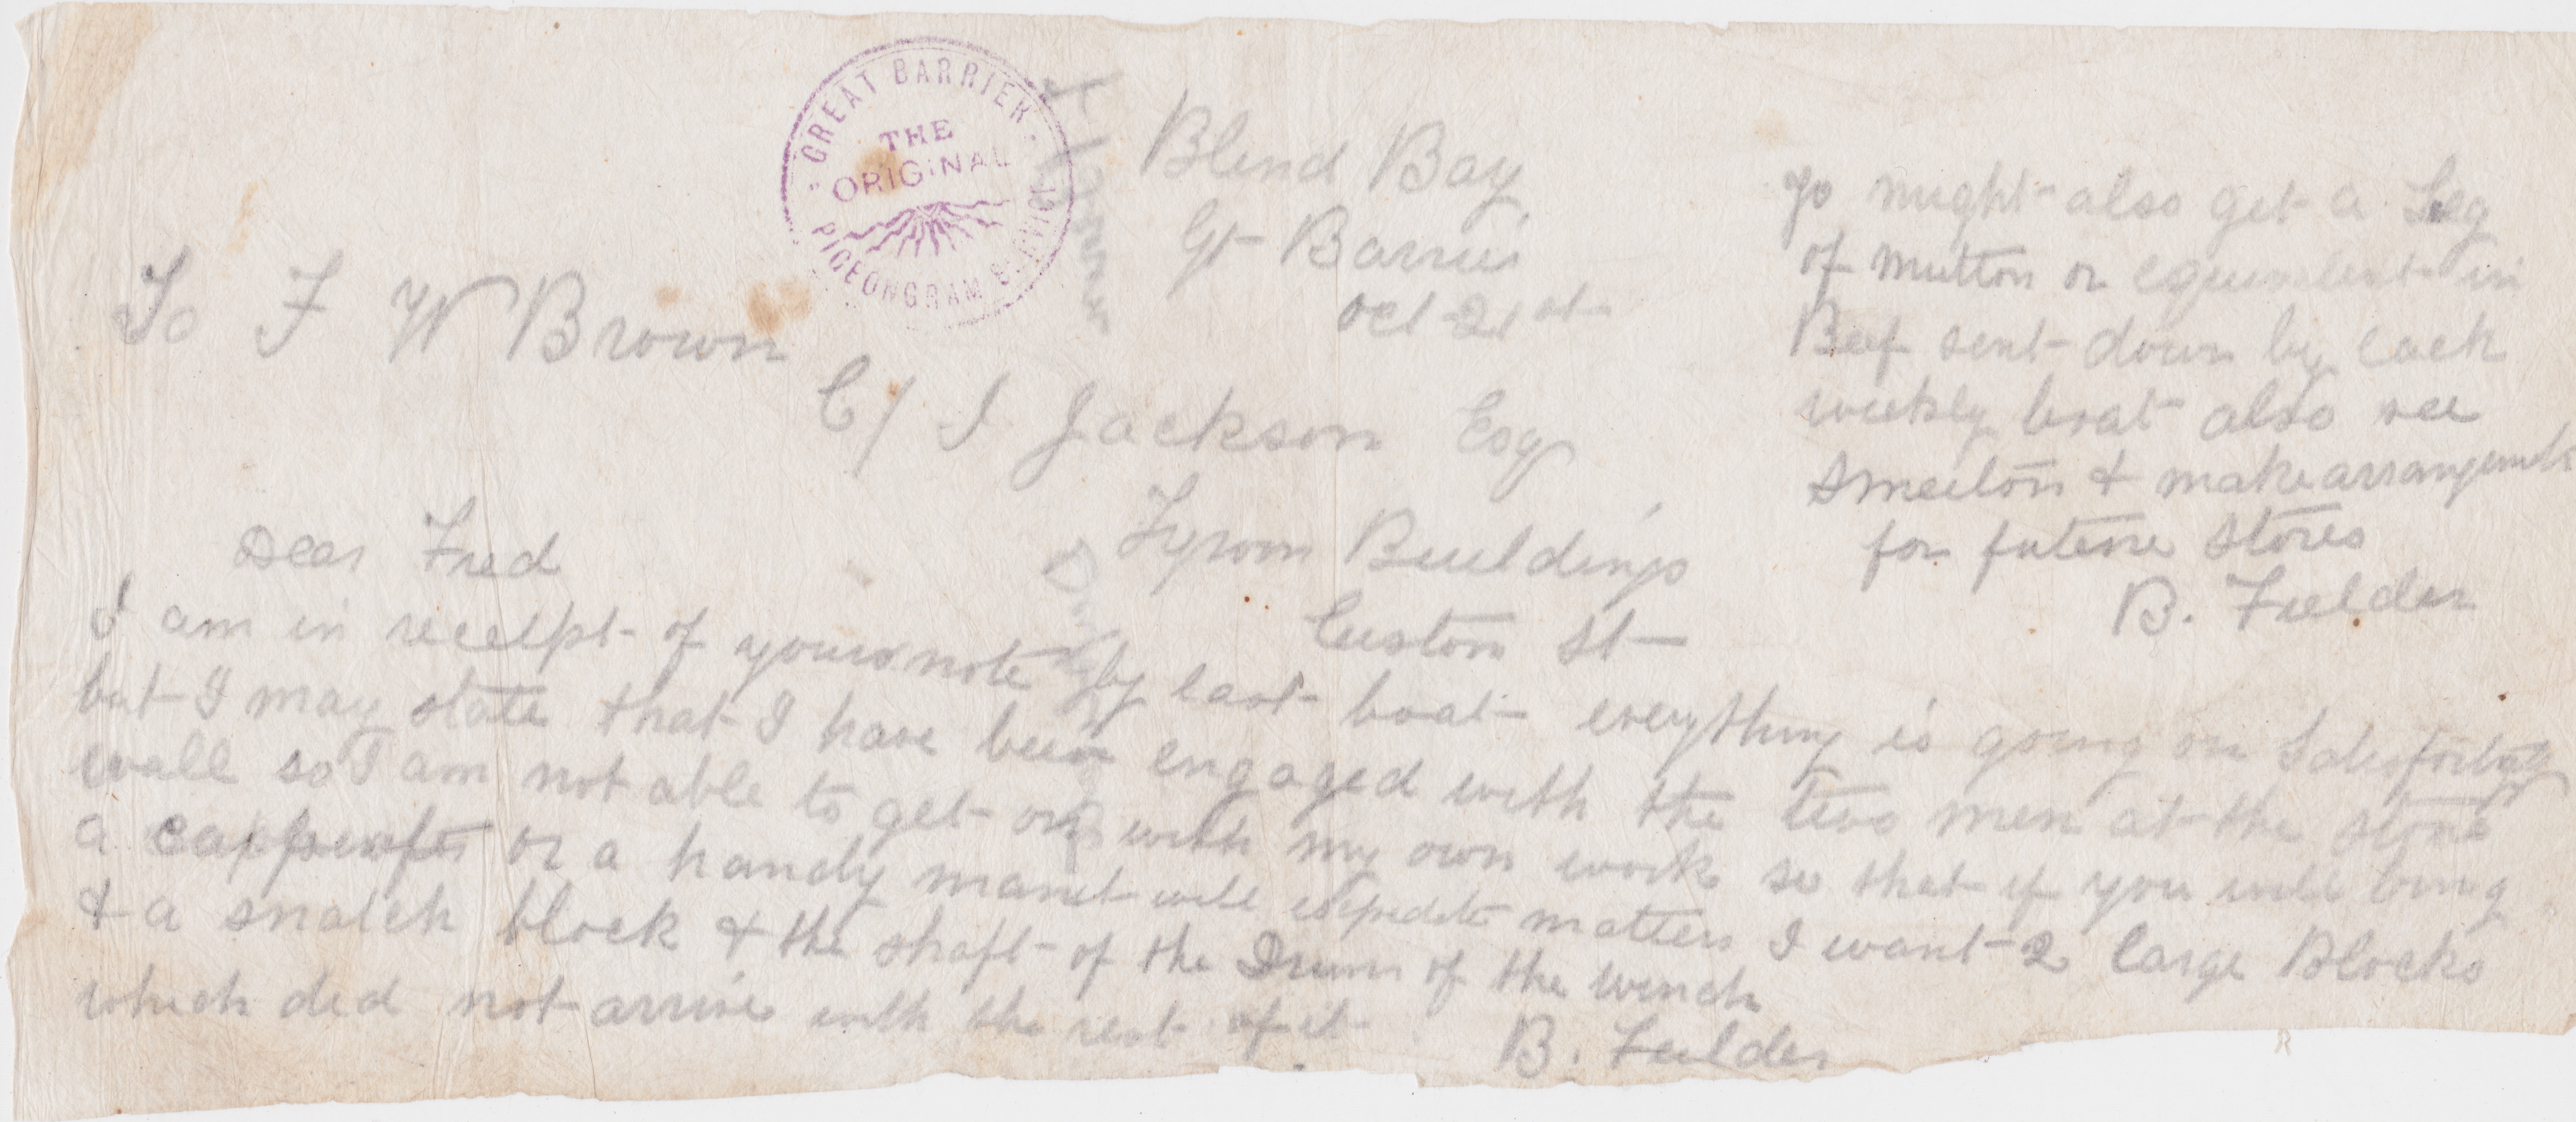 GREAT BARRIER
THE
ORIGINAL
PIGEONGRAM SERVICE
Blind Bay
Gt Barrier
Oct 21st
To F W Brown
C/ J Jackson Esq
Tyrom Buildings
Custom St
Dear Fred
I am in receipt of yours note by last boat everything is going on Satisfactory
but I may state that I have been engaged with the two men at the stone
wall so I am not able to get on with my own work so that if you will bring
a carpenter or a handy man it will expedite matters I want 2 large Blocks
& a snatch block & the shaft of the Drum of the winch
which did not arrive with the rest of it
B. Fielder
yo might also get a Leg
of mutton or equivalent in
Beef sent down by each
weekly boat also see
Smeeton & make arrangements
for future stores
B. Fielder